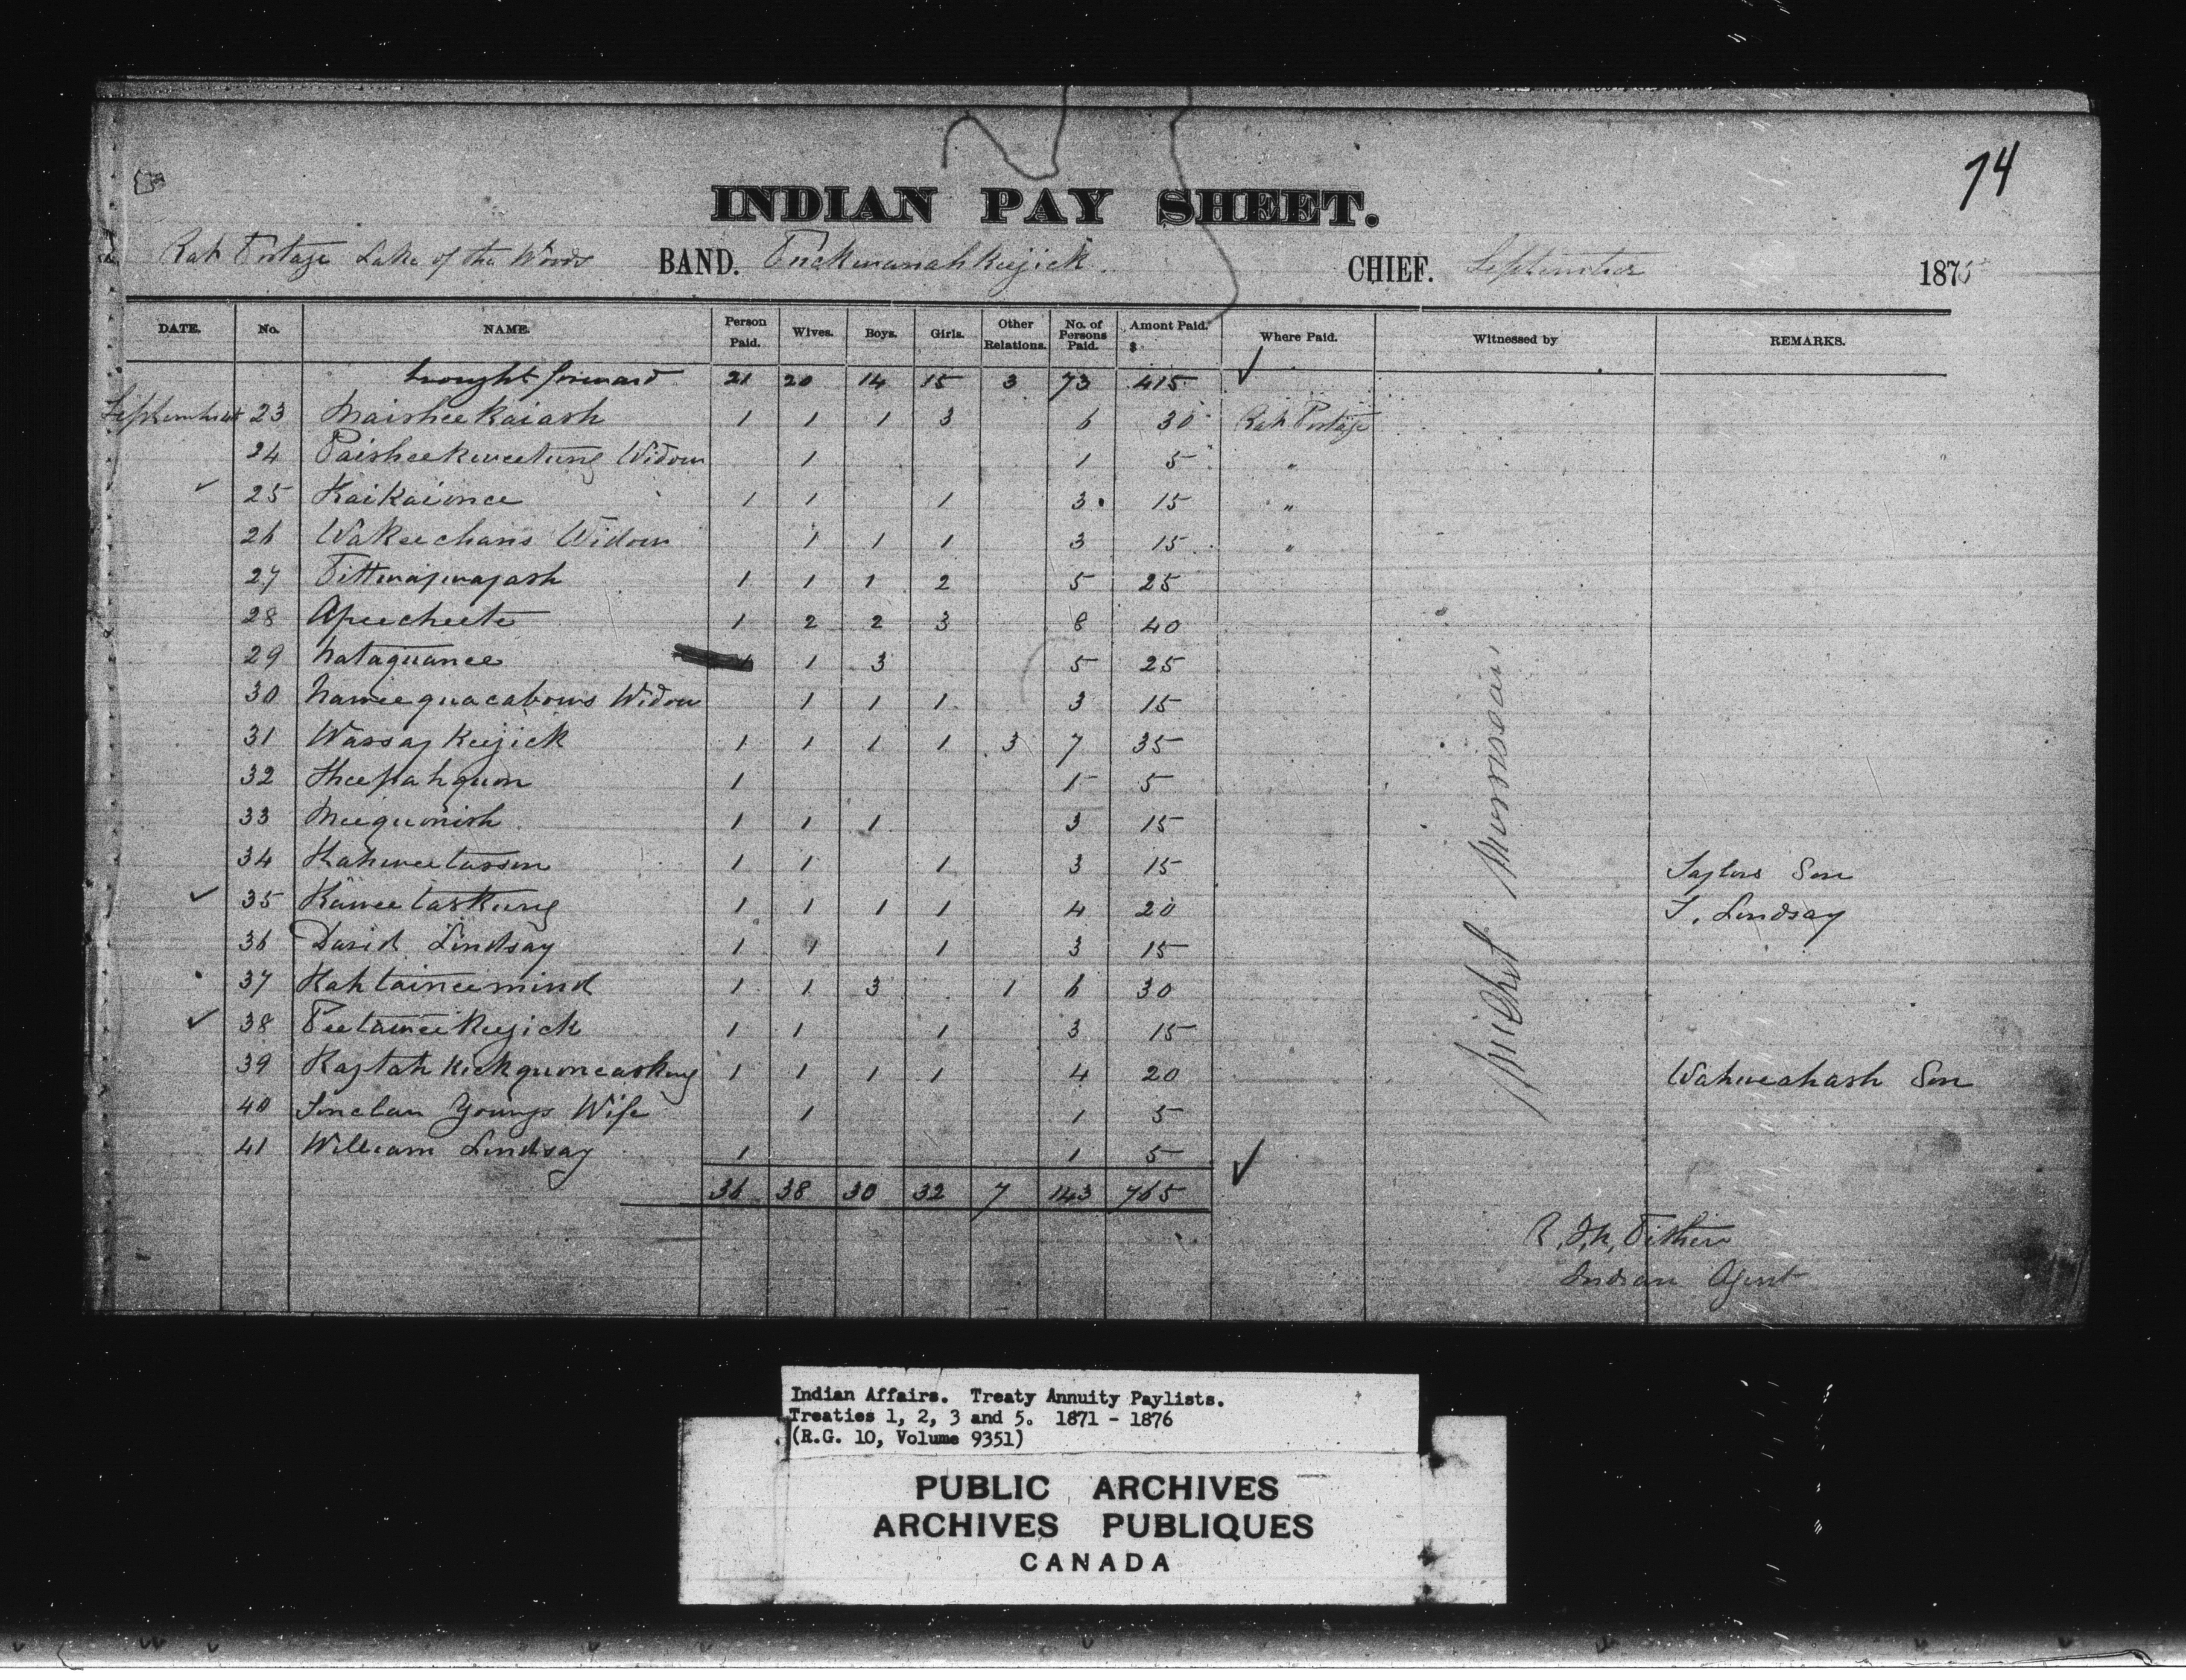 74
INDIAN PAY SHEET.
Rat Portage Lake of the Woods BAND. CHIEF. September 1875
DATE. No. NAME. Person Paid. Wives. Boys. Girls. Other Relations. No. of Persons Paid. Amont Paid. $ Where Paid. Witnessed by REMARKS.
brought forward 21 20 14 15 3 73 415
September 23 Maisheekaiash 1 1 1 3 6 30 Rat Portage
24 Paisheekweetung Widow 1 1 5 "
25 Kaikaionce 1 1 1 3 15 "
26 Wakeechans Widow 1 1 1 3 15 "
27 1 1 1 2 5 25
28 Apeecheete 1 2 2 3 8 40
29 Nataquance 1 1 3 5 25
30 Nameequacabows Widow 1 1 1 3 15
31 Wassay Keejick 1 1 1 1 3 7 35
32 Sheepahquon 1 1 5
33 Meequonish 1 1 1 3 15
34 Kahweetasson 1 1 1 3 15 Taylors Son
35 Kaweetaskung 1 1 1 1 4 20 T. Lindsay
36 David Lindsay 1 1 1 3 15
37 Kahtaineemind 1 1 3 1 6 30
38 Peetawee Keejick 1 1 1 3 15
39 Kaytahkeekquoneaskung 1 1 1 1 4 20 Wahweahash Son
40 Sinclair Youngs Wife 1 1 5
41 William Lindsay 1 1 5
36 38 30 32 7 143 765
Michel Morrisseau
R. J. N. Pither
Indian Agent
Indian Affairs. Treaty Annuity Paylists.
Treaties 1, 2, 3 and 5. 1871 - 1876
(R.G. 10, Volume 9351)
PUBLIC ARCHIVES
ARCHIVES PUBLIQUES
CANADA